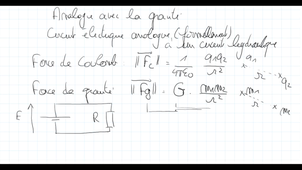 Analogie avec la gravité
Circuit électrique analogue (formellement)
à un circuit hydraulique
Force de Coulomb ||F_c|| = 1/4πε0 q1q2/r² × q1 r × q2
Force de gravité ||F_g|| = G · m1m2/r² × m1 r × m2
E R